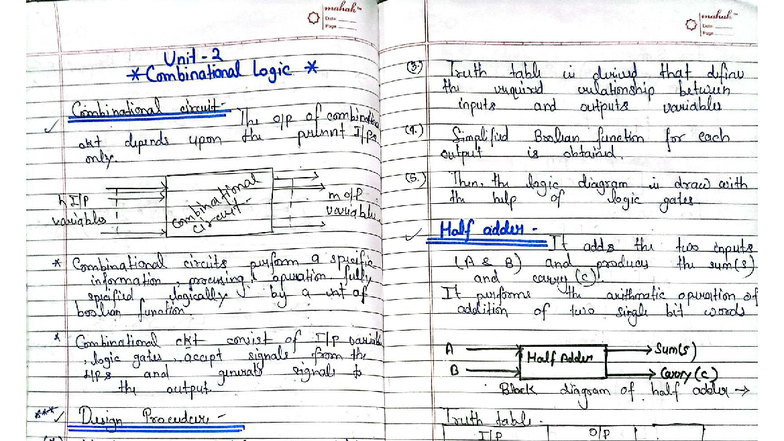 mahak
Date
Page
Unit - 2
* Combinational Logic *
Combinational circuit - The o/p of combination
ckt depends upon the present I/Ps
only.
n I/P
variables
Combinational
circuit
m o/p
variable
* Combinational circuits perform a specific
information processing operation fully
specified logically by a set of
boolian function.
* Combinational ckt consist of I/P variable
, logic gates, accept signals from the
I/Ps and generate signals to
the output.
*** Design Procedure -
mahak
Date
Page
(3.) Truth table is derived that define
the required relationship between
inputs and outputs variables
(4.) Simplified Boolian function for each
output is obtained.
(5.) Then, the logic diagram is draw with
the help of logic gates.
Half adder - It adds the two inputs
(A & B) and produces the sum(s)
and carry (c).
It performs the arithmatic operation of
addition of two single bit words
A
B
Half Adder
Sum(s)
Carry (c)
Block diagram of half adder →
Truth table -
I/P O/P